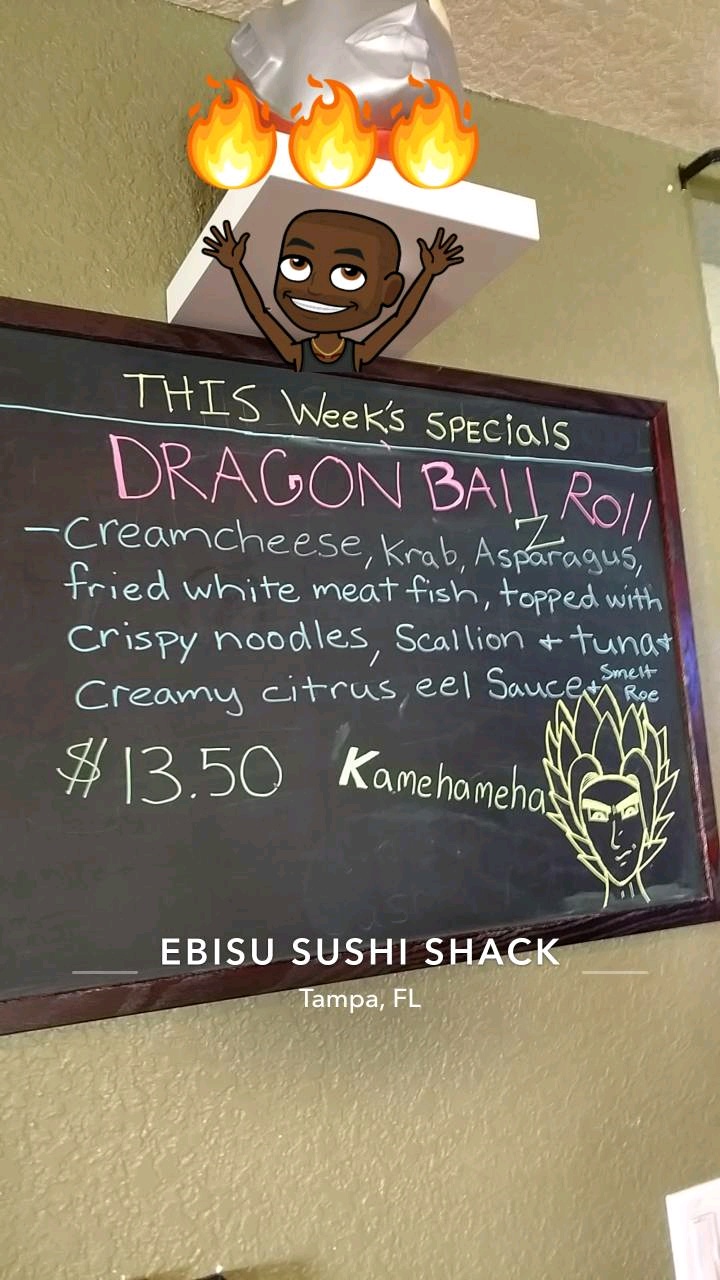 THIS Week's SPECiaLS
DRAGON BAll Z Roll
- Creamcheese, Krab, Asparagus,
fried white meat fish, topped with
Crispy noodles, Scallion + tuna +
Creamy citrus, eel Sauce + Smelt Roe
$13.50 Kamehameha
EBISU SUSHI SHACK
Tampa, FL